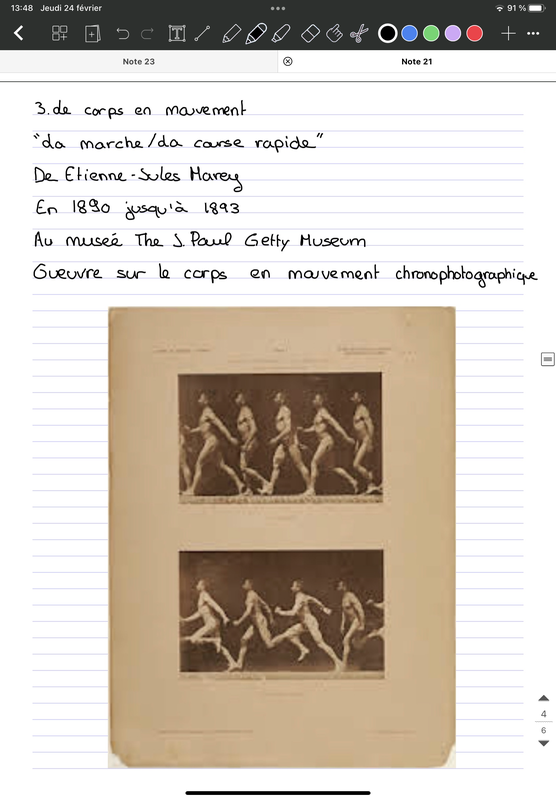 13:48 Jeudi 24 février
91 %
Note 23
Note 21
3. de corps en mouvement
"da marche/da course rapide"
De Etienne-Jules Marey
En 1890 jusqu'à 1893
Au museé The J. Paul Getty Museum
Gueuvre sur le corps en mouvement chronophotographique
4
6